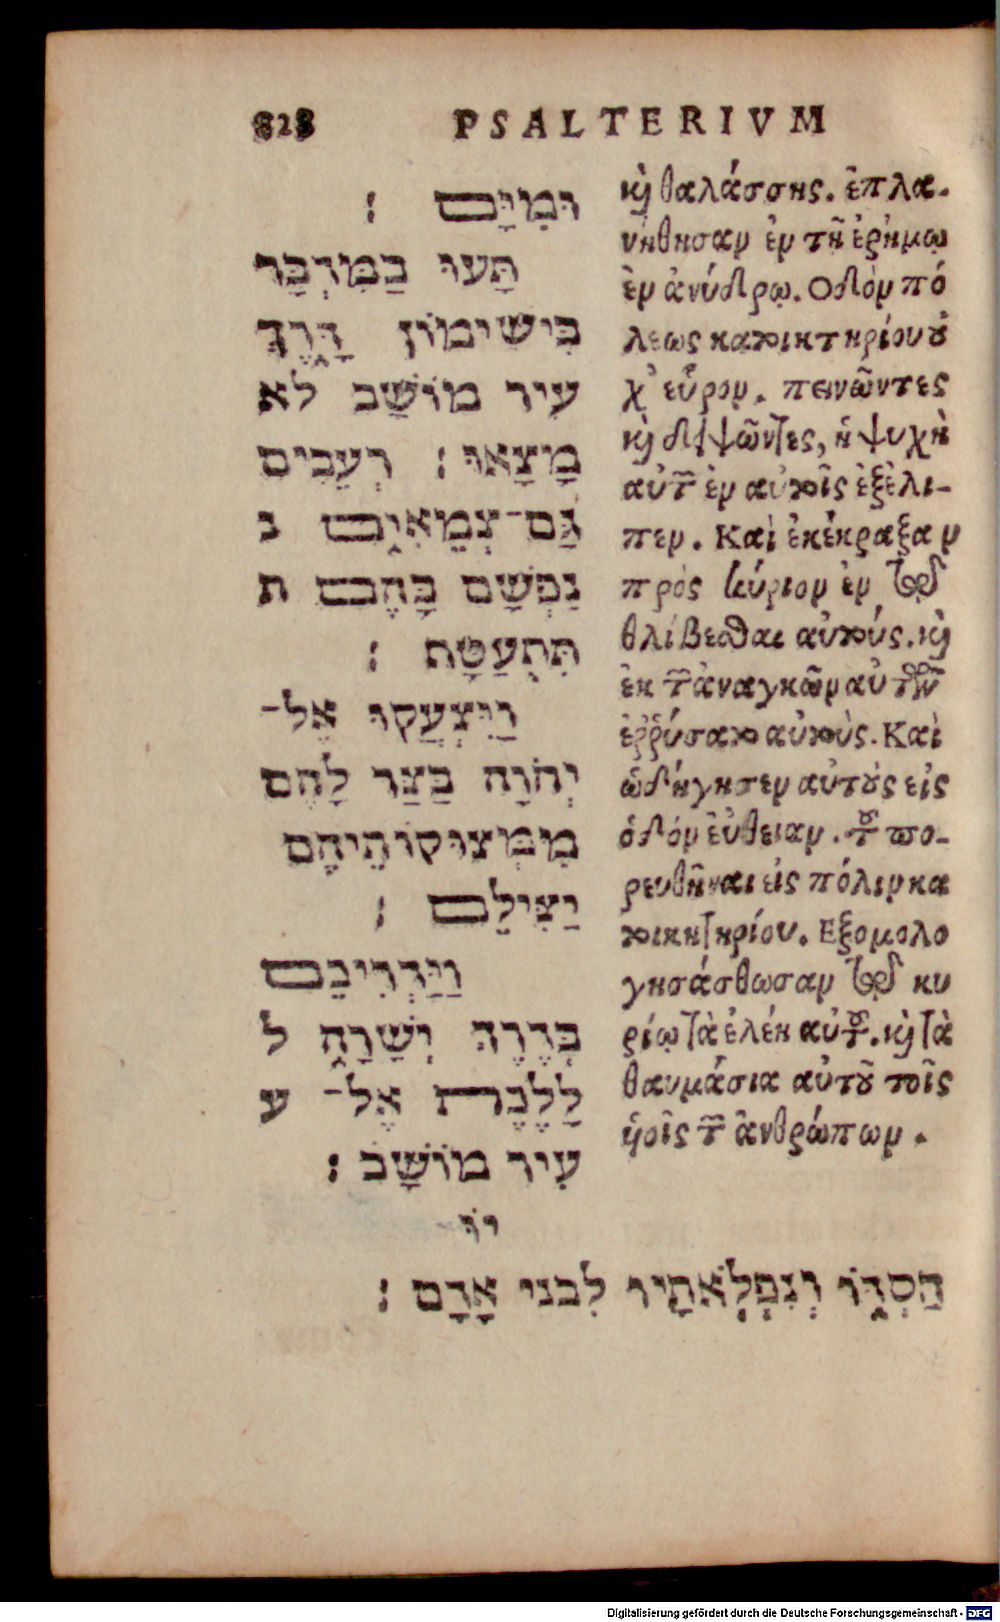 828 PSALTERIVM
וּמִיָּם :
תָּעוּ בַמִּדְבָּר
בִּישִׁימוֹן דָּרֶךְ
עִיר מוֹשָׁב לֹא
מָצָאוּ : רְעֵבִים
גַּם־צְמֵאִים נ
נַפְשָׁם בָּהֶם ת
תִּתְעַטָּת :
וַיִּצְעֲקוּ אֶל־
יְהוָה בַּצַּר לָהֶם
מִמְּצוּקוֹתֵיהֶם
יַצִּילֵם :
וַיַּדְרִיכֵם
בְּדֶרֶךְ יְשָׁרָה ל
לָלֶכֶת אֶל־ ע
עִיר מוֹשָׁב :
יוֹ
הַסְדּוֹ וְנִפְלְאֹתָיו לִבני אָדָם :
κỳ θαλάσσης. ἐπλα-
νήθησαν ἐν τῆ ἐρήμῳ
ἐν ἀνύδρῳ. Οδὸν πό
λεως κατοικτηρίου ȣ̓
χ' εὗρον. πεινῶντες
κỳ διψῶντες, ἡ ψυχὴ
αὐτῶν ἐν αὐτοῖς ἐξέλι-
πεν. Καὶ ἐκέκραξαν
πρὸς κύριον ἐν τῷ
θλίβεσθαι αὐτούς. κỳ
ἐκ τῶν ἀναγκῶν αὐτῶν
ἐῤῥύσατο αὐτοὺς. Καὶ
ὡδήγησεν αὐτȣ̀ς εἰς
ὁδόν εὐθειαν. τοῦ πο-
ρευθῆναι εἰς πόλιν κα
τοικητηρίου. Εξομολο
γησάσθωσαν τῷ κυ
ρίῳ τὰ ἐλέη αὐτοῦ. κỳ τὰ
θαυμάσια αὐτȣ͂ τοῖς
ὑοῖς τῶν ἀνθρώπων.
Digitalisierung gefördert durch die Deutsche Forschungsgemeinschaft - DFG